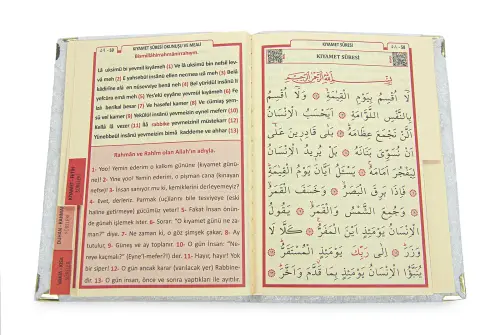 ٥٨ - 58
KIYAMET SÛRESİ OKUNUŞU VE MEALİ
Bismillâhirrahmânirrahıym.
Lâ uksimü bi yevmil kıyâmeh (1) Ve lâ uksimü bin nefsil lev-
vâ meh (2) E yahsebül insânü ellen necmea ızâ meh (3) Belâ
kâdirîne alâ en nüsevviye benâ neh (4) Bel yürîdül insânü li
yefcüra emâ meh (5) Yes'elü eyyâne yevmül kıyâmeh (6) Fe
izâ berikal besar (7) Ve hasefel kamer (8) Ve cümiaş şem-
sü vel kamer (9) Yekûlül insânü yevmeizin eynel mefer (10)
Kellâ lâ vezer (11) İlâ rabbike yevmeizinil müstekarr (12)
Yünebbeül insânü yevmeizim bimâ kaddeme ve ahhar (13)
Rahmân ve Rahîm olan Allah'ın adıyla.
1- Yoo! Yemin ederim o kalkım gününe (kıyamet günü-
ne)! 2- Yine yoo! Yemin ederim, o pişman cana (kınayan
nefse)! 3- İnsan sanıyor mu ki, kemiklerini derleyemeyiz?
4- Evet, derleriz. Parmak (uç)larını bile tesviyeye (eski
haline getirmeye) gücümüz yeter! 5- Fakat insan önün-
de günah işlemek ister. 6- Sorar: "O kıyamet günü ne za-
man?" diye. 7- Ne zaman ki, o göz şimşek çakar, 8- Ay
tutulur, 9- Güneş ve ay toplanır. 10- O gün insan: "Ne-
reye kaçmalı? (Eyne'l-mefer?!) der. 11- Hayır, hayır! Yok
bir siper! 12- O gün ancak karar (varılacak yer) Rabbine-
dir. 13- O gün insan, önce ve sonra yaptıkları ile ayıtılır.
KIYAMET SÛRESİ
٥٨ - 58
KIYAMET SÛRESİ
بِسْمِ اللّٰهِ الرَّحْمٰنِ الرَّحِيمِ
لَٓا اُقْسِمُ بِيَوْمِ الْقِيٰمَةِ ۞ وَلَٓا اُقْسِمُ
بِالنَّفْسِ اللَّوَّامَةِ ۞ اَيَحْسَبُ الْاِنْسَانُ
اَلَّنْ نَجْمَعَ عِظَامَهُ ۞ بَلٰى قَادِرِينَ عَلٰٓى
اَنْ نُسَوِّيَ بَنَانَهُ ۞ بَلْ يُرِيدُ الْاِنْسَانُ
لِيَفْجُرَ اَمَامَهُ ۞ يَسْـَٔلُ اَيَّانَ يَوْمُ الْقِيٰمَةِ
۞ فَاِذَا بَرِقَ الْبَصَرُ ۞ وَخَسَفَ الْقَمَرُ
۞ وَجُمِعَ الشَّمْسُ وَالْقَمَرُ ۞ يَقُولُ
الْاِنْسَانُ يَوْمَئِذٍ اَيْنَ الْمَفَرُّ ۞ كَلَّا لَا
وَزَرَ ۞ اِلٰى رَبِّكَ يَوْمَئِذٍ الْمُسْتَقَرُّ ۞
يُنَبَّؤُا الْاِنْسَانُ يَوْمَئِذٍ بِمَا قَدَّمَ وَاَخَّرَ ۞